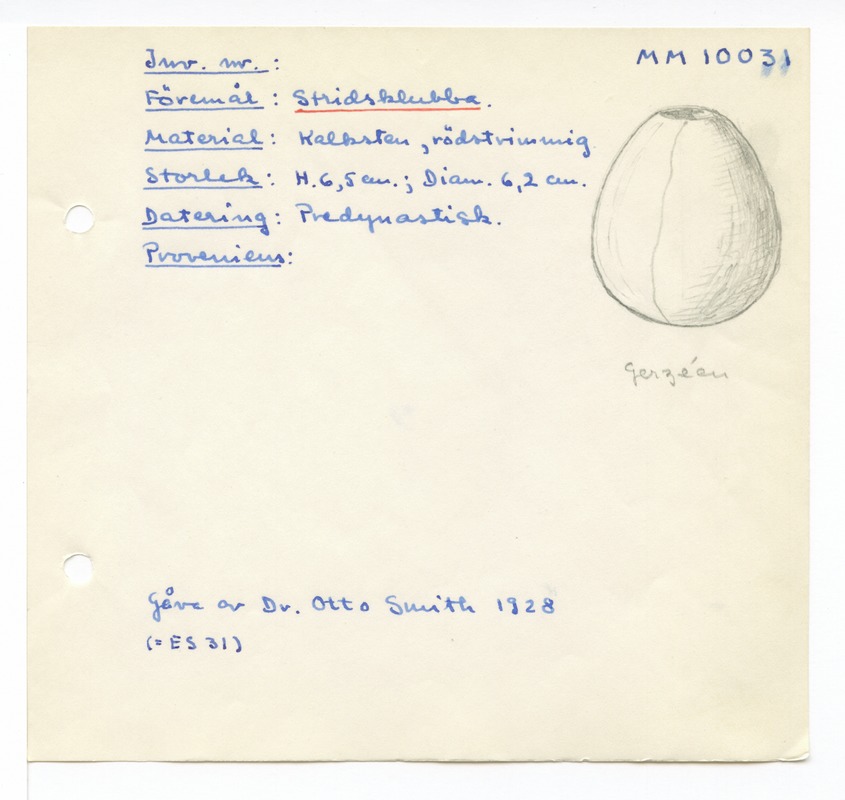 MM 10031
Inv. nr. :
Föremål : Stridsklubba.
Material : Kalksten, rödstrimmig
Storlek : H. 6,5 cm. ; Diam. 6,2 cm.
Datering : Predynastisk.
Proveniens :
Gerzéen
Gåva av Dr. Otto Smith 1928
(= ES 31)